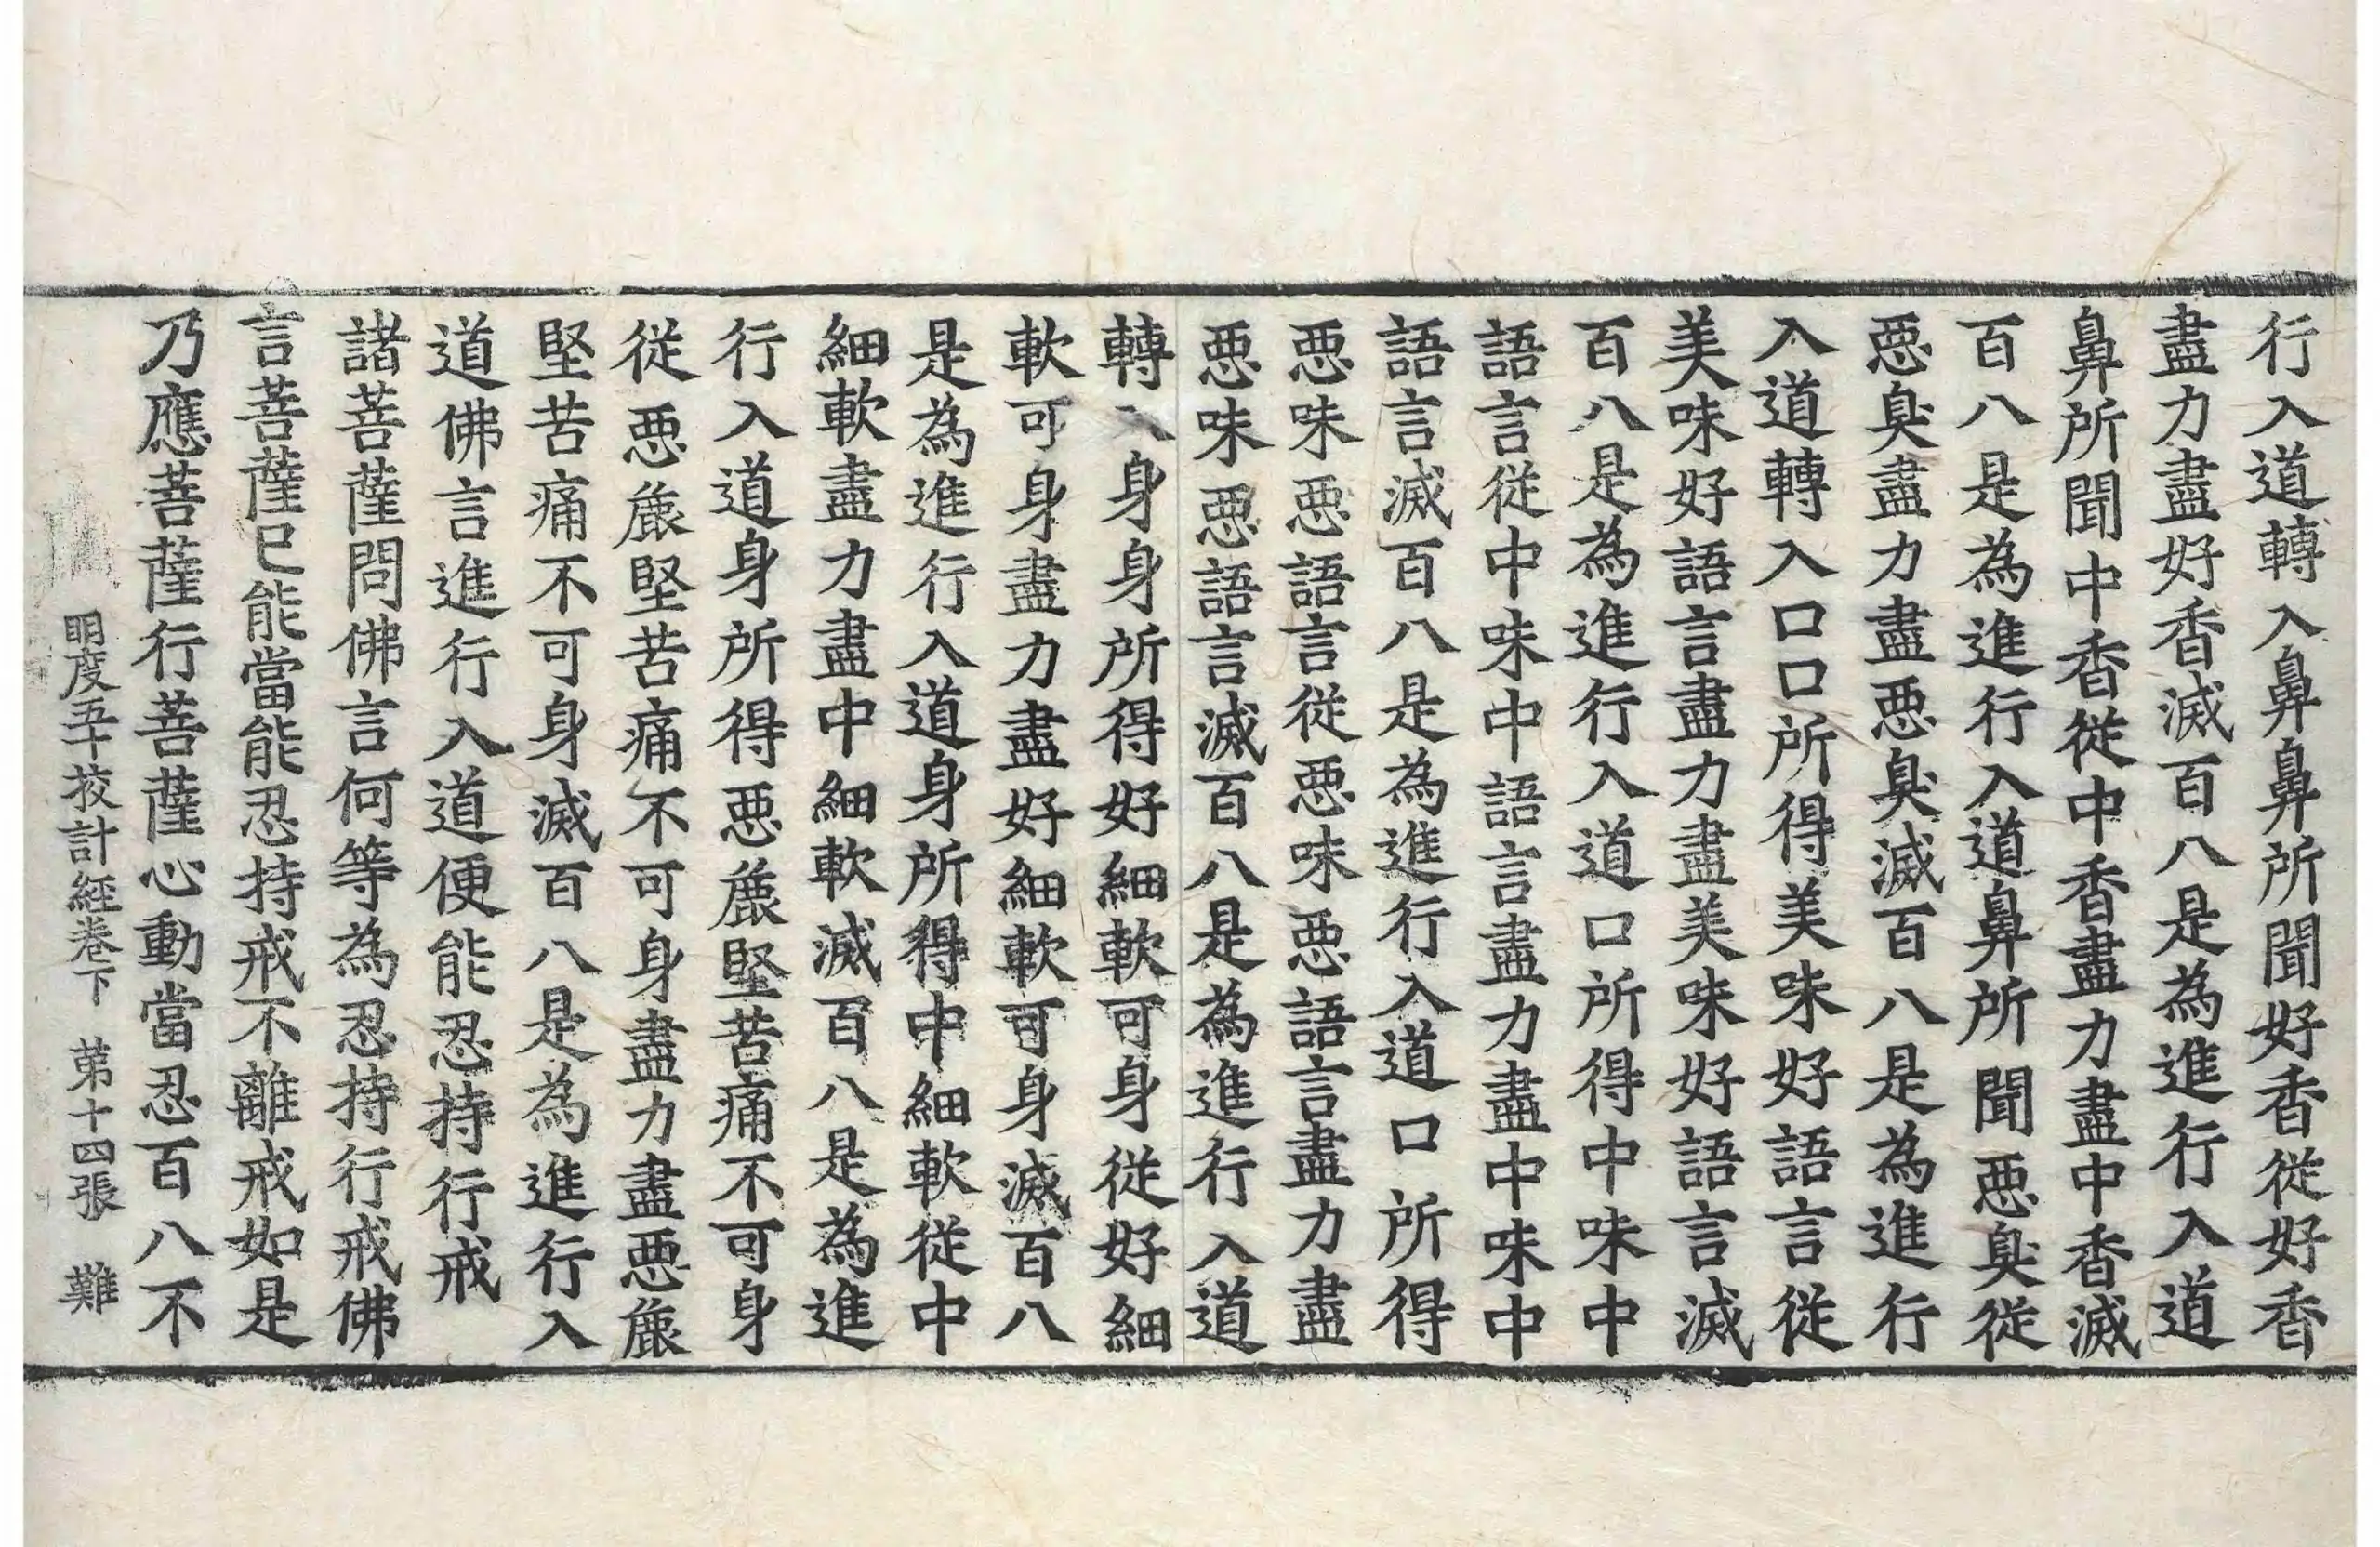 行入道轉入鼻鼻所聞好香從好香
盡力盡好香滅百八是為進行入道
鼻所聞中香從中香盡力盡中香滅
百八是為進行入道鼻所聞惡臭從
惡臭盡力盡惡臭滅百八是為進行
入道轉入口口所得美味好語言從
美味好語言盡力盡美味好語言滅
百八是為進行入道口所得中味中
語言從中味中語言盡力盡中味中
語言滅百八是為進行入道口所得
惡味惡語言從惡味惡語言盡力盡
惡味惡語言滅百八是為進行入道
轉入身身所得好細軟可身從好細
軟可身盡力盡好細軟可身滅百八
是為進行入道身所得中細軟從中
細軟盡力盡中細軟滅百八是為進
行入道身所得惡麁堅苦痛不可身
從惡麁堅苦痛不可身盡力盡惡麁
堅苦痛不可身滅百八是為進行入
道佛言進行入道便能忍持行戒
諸菩薩問佛言何等為忍持行戒佛
言菩薩已能當能忍持戒不離戒如是
乃應菩薩行菩薩心動當忍百八不
明度五十挍計經卷下 第十四張 難